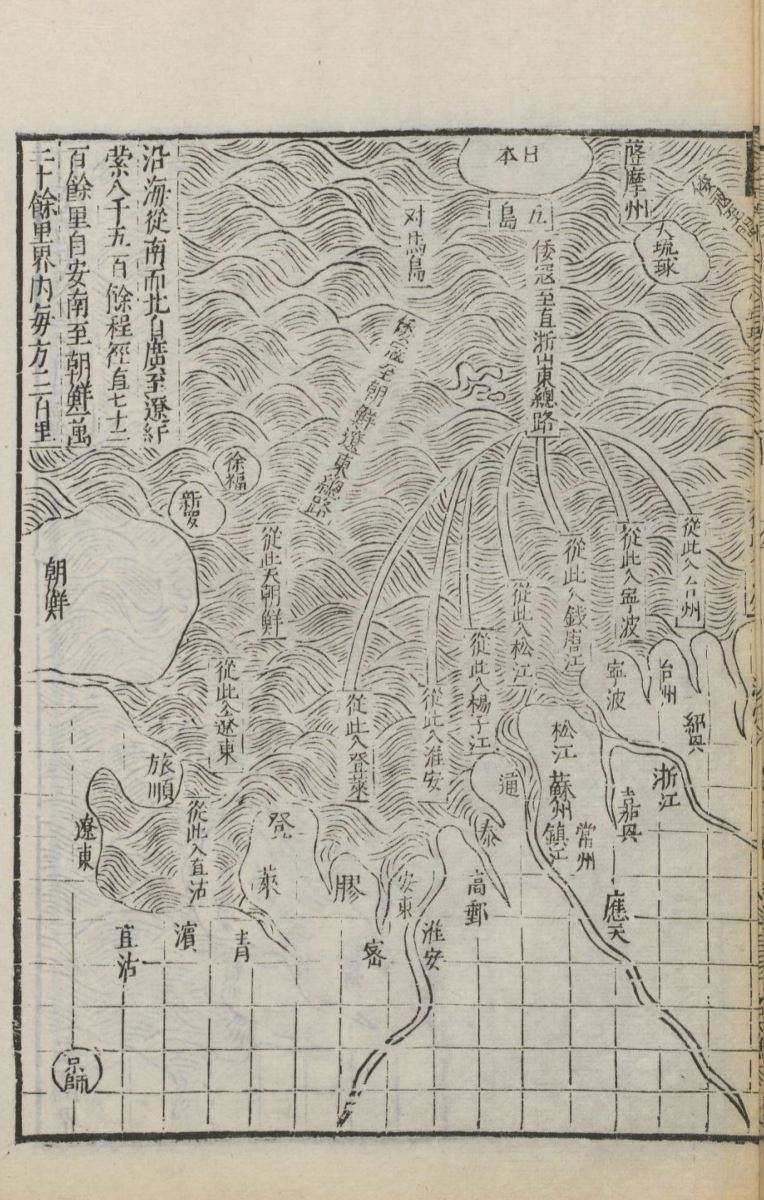 沿海從南而北自廣至遼紆
縈八千五百餘程徑直七千二
百餘里自安南至朝鮮萬
二十餘里界內每方二百里
本日
島九
薩摩州
大琉球
对馬島
倭寇至直浙山東總路
倭寇至朝鮮遼東總路
徐福
新罗
朝鮮
從此入台州
從此入寧波
從此入錢唐江
從此入松江
從此入楊子江
從此入淮安
從此入登萊
從此入朝鮮
從此入遼東
從此入直沽
寧波
台州
紹兴
浙江
嘉兴
松江
蘇州
常州
鎮江
應天
通
泰
高郵
淮安
安東
密
膠
登
萊
青
濱
直沽
旅順
遼東
京師